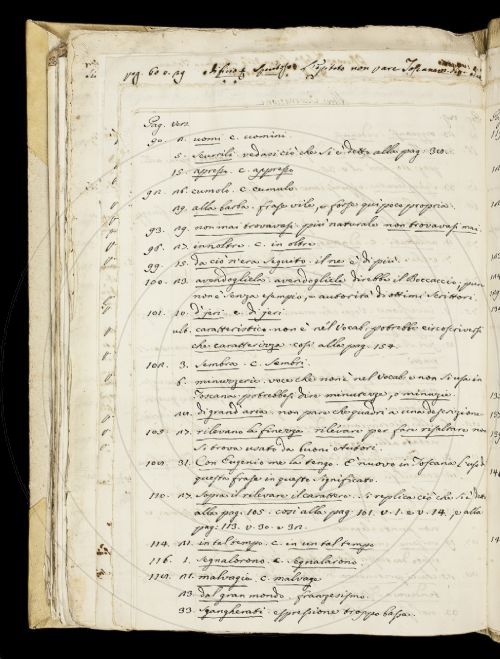 pag. 60 v. 29 Spiritoso Epiteto non pare Toscano
Pag. vers.
90. 11. uomi c. uomini.
5. Scurrili vedasi ciò che si è detto alla pag. 30.
15. apresso. c. appresso
92. 26. cumoli. c. cumulo
29. alla barba. frase vile, e forse qui poco propria.
93. 29. non mai trovavasi. più naturale non trovavasi mai.
96. 27. innoltre. c. in oltre
99. 15. da ciò n'era seguito. il ne è di più.
100. 23. avendoglielo. avendogliele direbbe il Boccaccio; pur
non è senza esempio, e autorità di ottimi Scrittori.
101. 10. d'jeri. c. di jeri
ult. caratteristico non è nel Vocab. potrebbe circoscriversi
che caratterizza. così alla pag. 154.
102. 3. Sembra. c. Sembri.
6. minuzzerie. voce che non è nel Vocab. e non si usa in
Toscana. potrebbesi dire minutezze, o minuzie.
di grand'aria. non pare che quadri a una descrizione
105. 27. rilevano la finezza. rilevari per fare risaltare non
si trova usato da buoni Autori.
109. 31. Con Eugenio me la tengo. È nuovo in Toscana l'uso di
questa frase in questo significato.
110. 27. Sopra il rilevare il carattere. Si replica ciò che si è detto
alla pag. 105. così alla pag. 101. v. 1. e v. 14, e alla
pag. 113. v. 30. e 32.
114. 21. in tal tempo. c. in un tal tempo
116. 1. segnalorono. c. segnalarono
21. malvagia. c. malvage
23. dal gran mondo. franzesismo.
33. sgangherati. espressione troppo bassa.